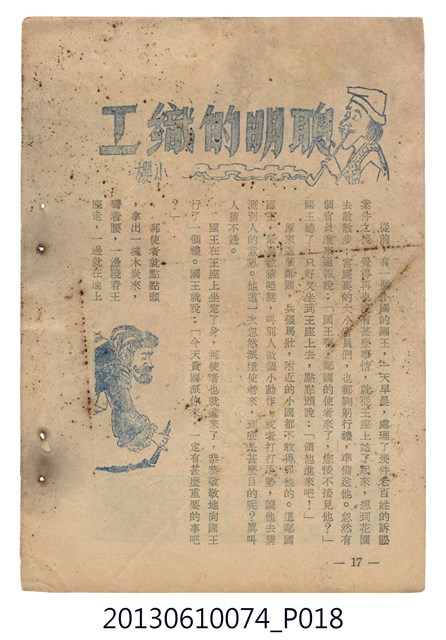 聰明的織工
小櫻
從前，有一個小國的國王，一天早晨，處理了幾件老百姓的訴訟
案件之後，覺得再也沒有甚麼事情，就從王座上站了起來，想到花園
去散散步。宮庭裏的大小官員們，也都鞠躬行禮，準備送他。忽然有
個官員進來通報說：「國王啊，鄰國的使者來了，您接不接見他？」
國王聽了，只好又坐到王座上去，點點頭說：「領他進來吧！」
原來這個鄰國，兵強馬壯，附近的小國都不敢得罪他的。這鄰國
國王，最喜歡猜啞謎，叫別人做個小動作，或者打打手勢，讓他去猜
測別人的意思。他這一次忽然派遣使者來，到底是甚麼目的呢？真叫
人猜不透。
國王在王座上坐定了身，那使者也就進來了，恭恭敬敬地向國王
行了一個禮。國王就說：「今天貴國派你來，一定有甚麼重要的事吧
？」
那使者就點點頭
，拿出一塊木炭來，
彎着腰，一邊繞着王
座走，一邊就在地上
— 17 —
20130610074_P018